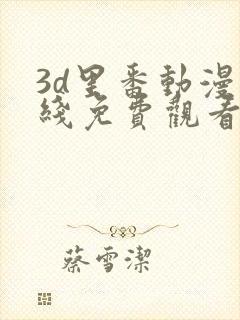 3d里番動漫
綫免費觀看
蔡雪潔